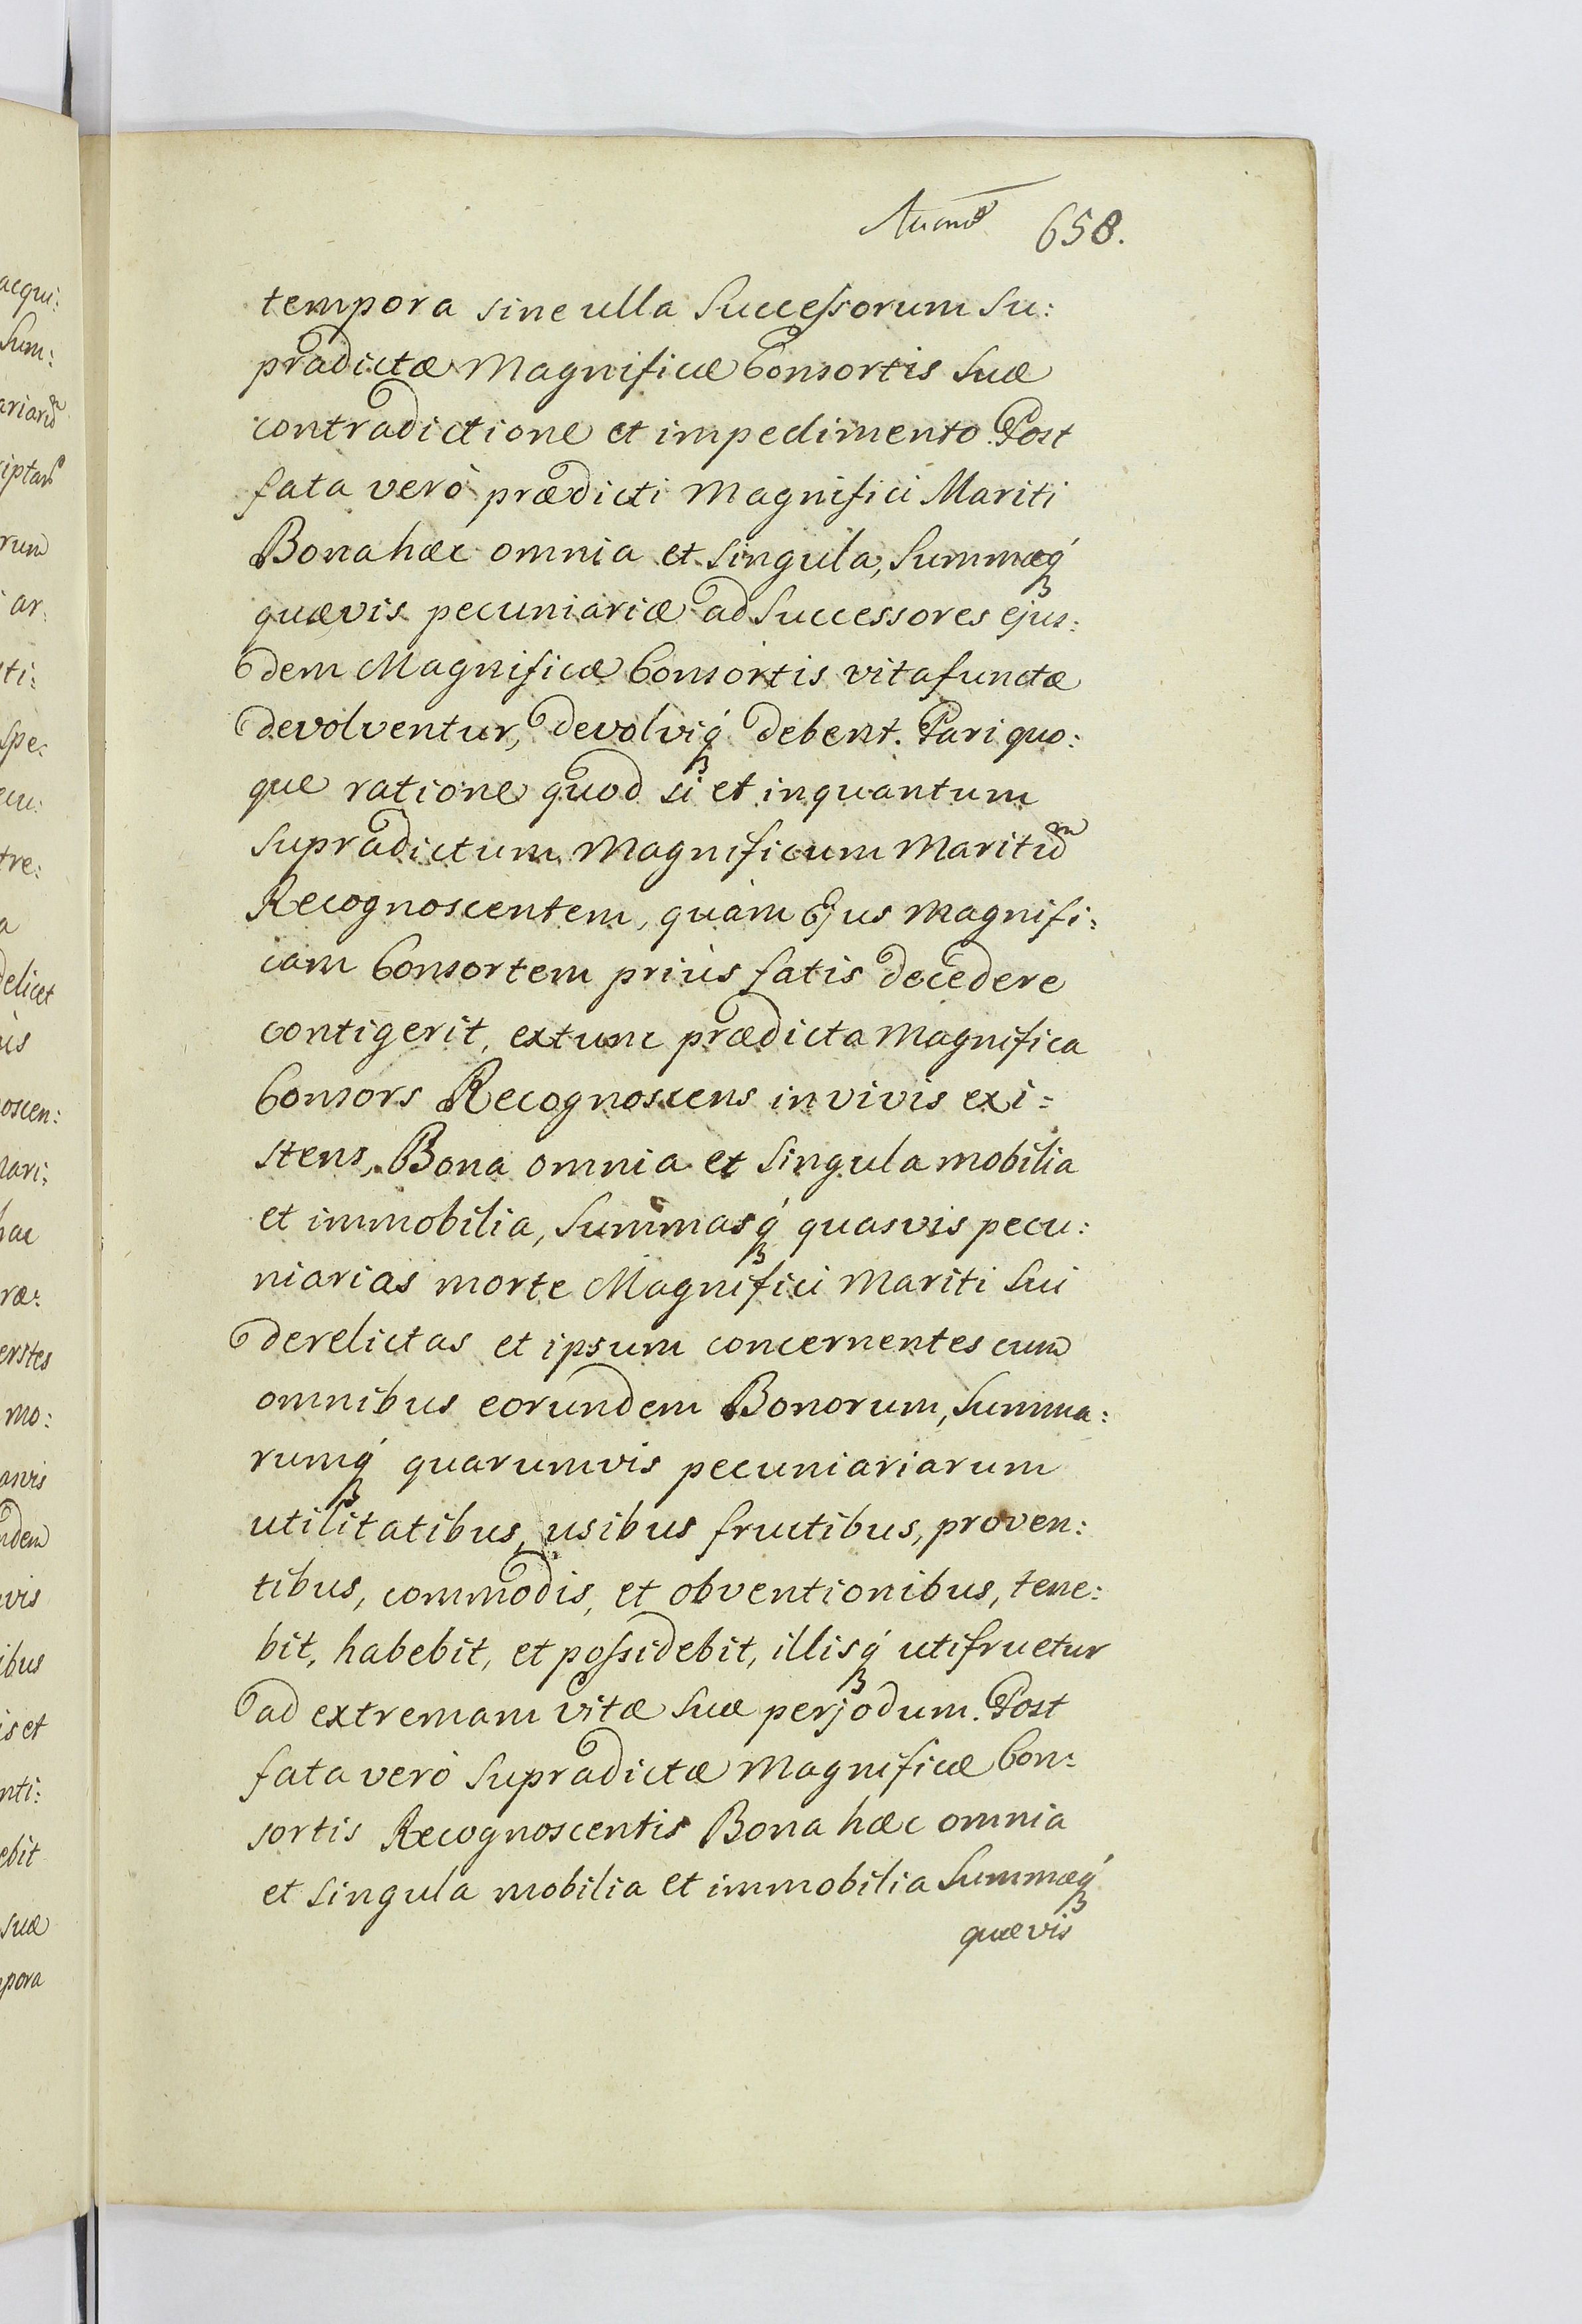 658.
tempora sine ulla Successorum Su:
prædictæ Magnificæ Consortis Suæ
contradictione et impedimento. Post
fata verò prædicti Magnifici Mariti
Bona hæc omnia et Singula, Summæq́ꝫ
quævis pecuniariæ ad Successores ejus:
dem Magnificæ Consortis vita functæ
devolventur, devolviq́ꝫ debent. Pari quo:
que ratione quod si et inquantum
Supradictum Magnificum Maritum
Recognoscentem, quàm Ejus Magnifi:
cam Consortem priùs fatis decedere
contigerit, extunc prædicta Magnifica
Consors Recognoscens in vivis exi:
stens, Bona omnia et Singula mobilia
et immobilia, Summasq́ꝫ quasvis pecu:
niarias morte Magnifici Mariti Sui
derelictas et ipsum concernentes cum
omnibus eorundem Bonorum, Summa:
rumq́ꝫ quarumvis pecuniariarum
utilitatibus, usibus fructibus, proven:
tibus, commodis, et obventionibus, tene:
bit, habebit, et possidebit, illisq́ꝫ utifruetur
ad extremam vitæ Suæ perjodum. Post
fata verò Supradictæ Magnificæ Con:
sortis Recognoscentis Bona hæc omnia
et Singula mobilia et immobilia Summæq́ꝫ
quævis